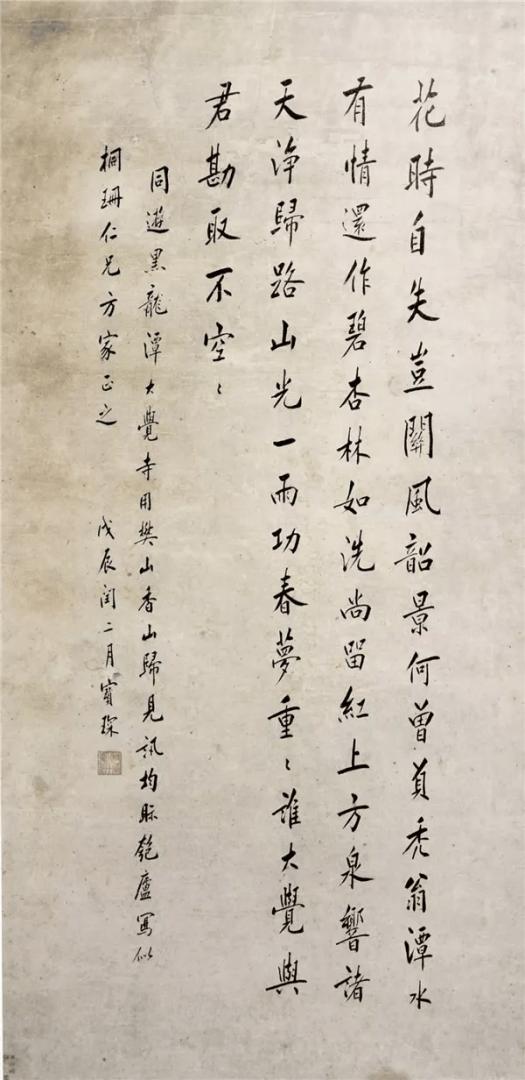 花時自失豈關風韶景何曾負禿翁潭水
有情還作碧杏林如洗尚留紅上方泉響諸
天淨歸路山光一雨功春夢重〻誰大覺與
君勘取不空〻
同遊黑龍潭大覺寺用樊山香山歸見訊均眎匏廬寫似
桐珊仁兄方家正之 戊辰閏二月寶琛